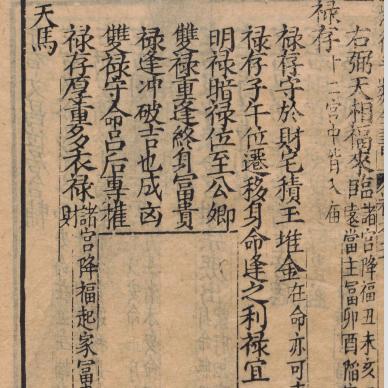 右弼天相福來臨諸宮降福丑未亥
當主富卯酉陷
禄存十二宮中皆入庙
禄存守於財宅積玉堆金在命亦可
禄存子午位遷移身命逢之利禄宜
明禄暗禄位至公卿
雙禄重逢終身富貴
禄逢冲破吉也成凶
雙禄守命呂后專權
禄存厚重多衣禄諸宮降福起家富
財
天馬